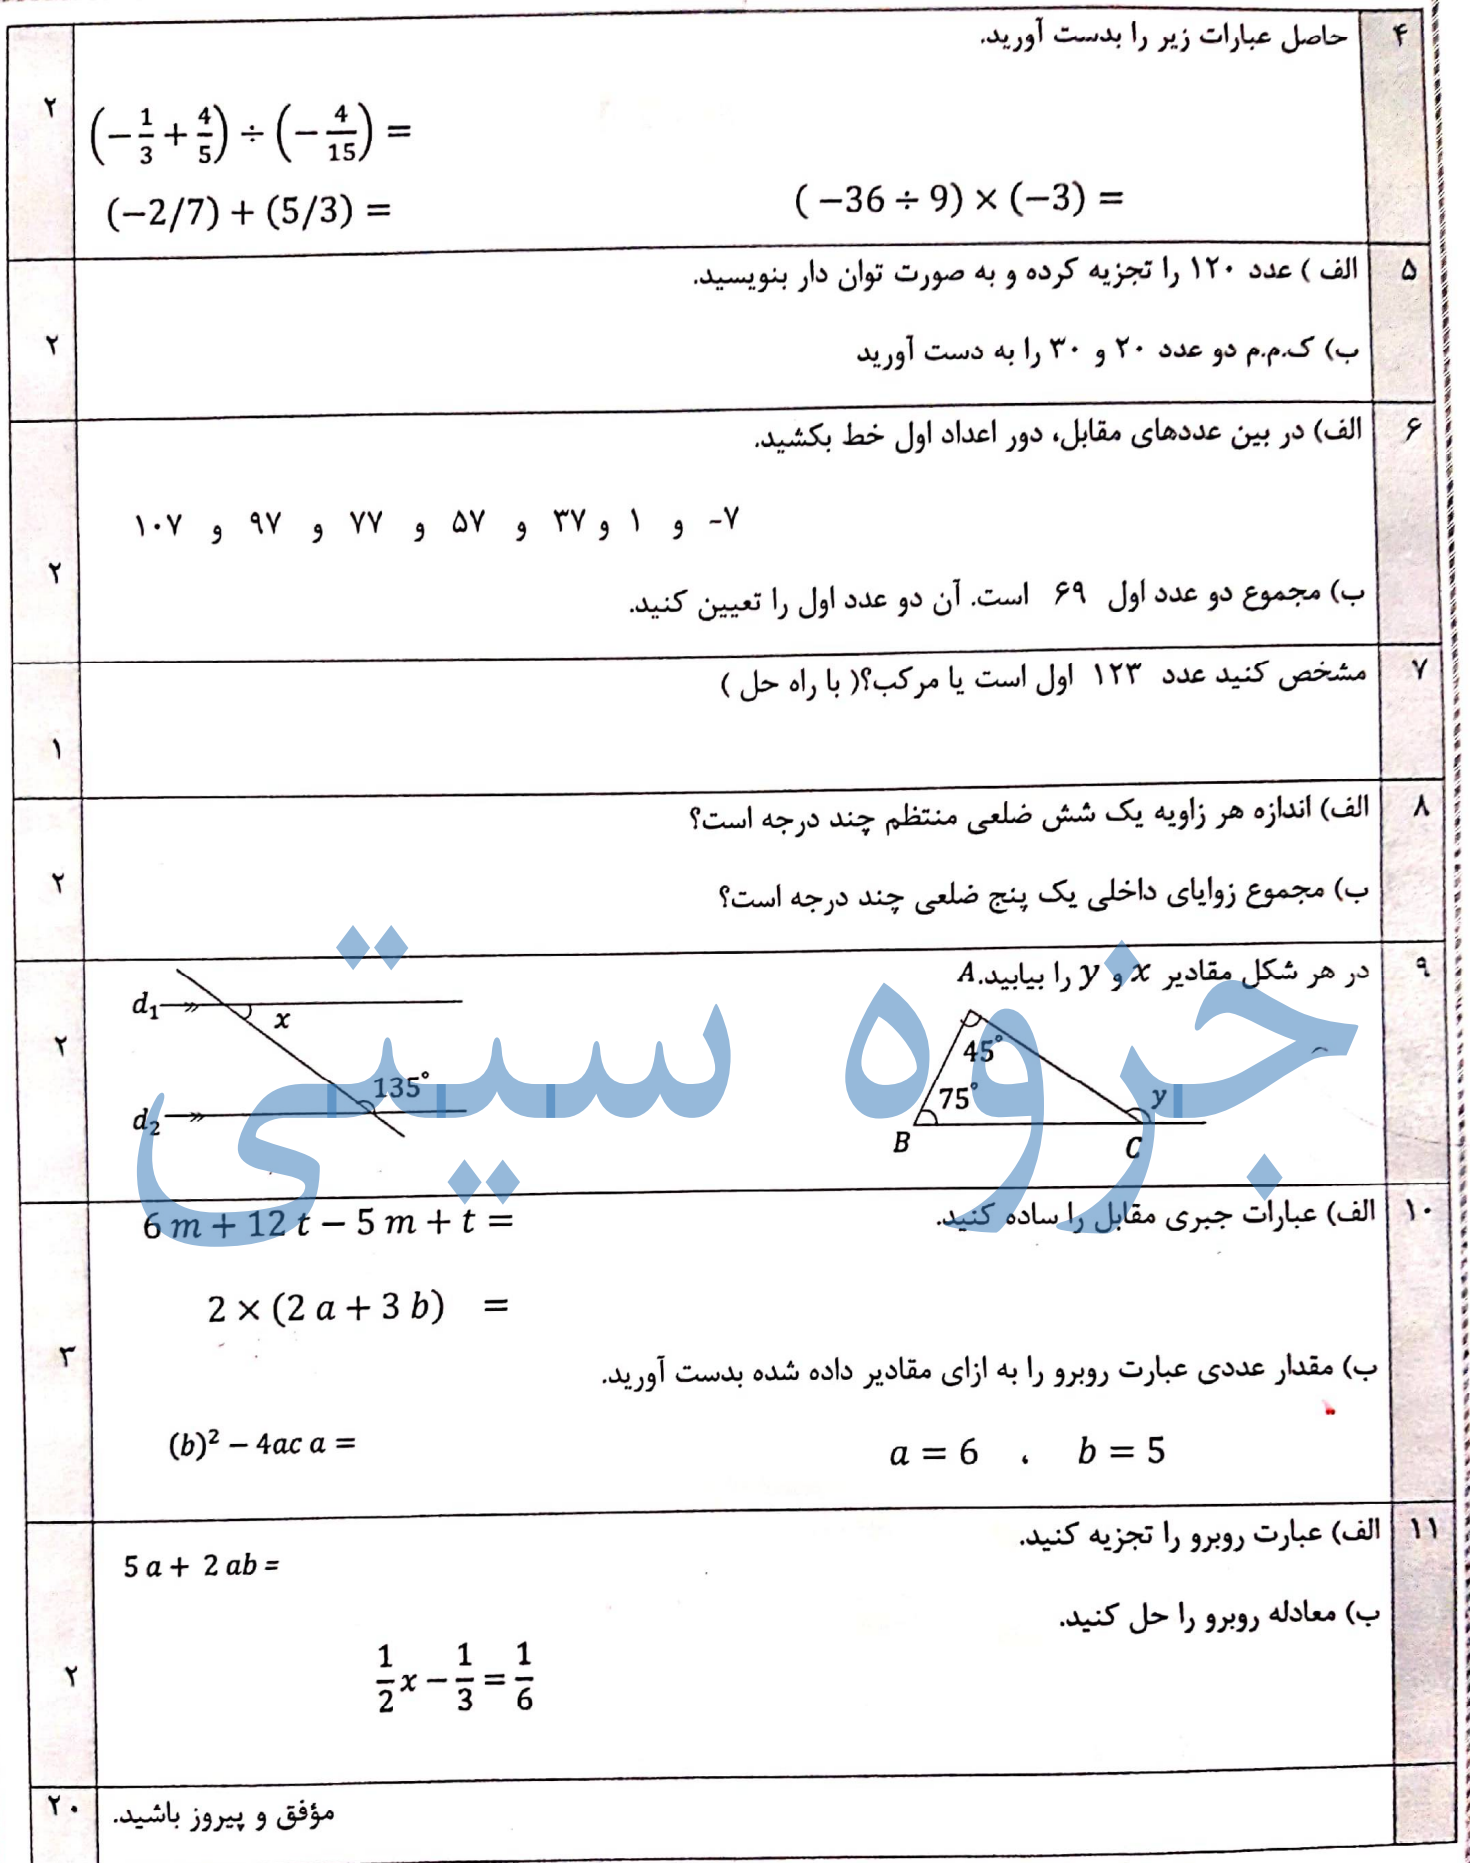 ۴
حاصل عبارات زیر را بدست آورید.
۲
(−1/3 + 4/5) ÷ (−4/15) =
(−2/7) + (5/3) =
( −36 ÷ 9) × (−3) =
۵
الف ) عدد ۱۲۰ را تجزیه کرده و به صورت توان دار بنویسید.
۲
ب) ک.م.م دو عدد ۲۰ و ۳۰ را به دست آورید
۶
الف) در بین عددهای مقابل، دور اعداد اول خط بکشید.
-۷ و ۱ و ۳۷ و ۵۷ و ۷۷ و ۹۷ و ۱۰۷
۲
ب) مجموع دو عدد اول ۶۹ است. آن دو عدد اول را تعیین کنید.
۷
مشخص کنید عدد ۱۲۳ اول است یا مرکب؟( با راه حل )
۱
۸
الف) اندازه هر زاویه یک شش ضلعی منتظم چند درجه است؟
۲
ب) مجموع زوایای داخلی یک پنج ضلعی چند درجه است؟
۹
در هر شکل مقادیر x و y را بیابید.
A
45°
75°
y
B
C
d₁
x
135°
d₂
۲
جزوه سیتی
۱۰
الف) عبارات جبری مقابل را ساده کنید.
6 m + 12 t − 5 m + t =
2 × (2 a + 3 b) =
۳
ب) مقدار عددی عبارت روبرو را به ازای مقادیر داده شده بدست آورید.
(b)² − 4ac a =
a = 6 . b = 5
۱۱
الف) عبارت روبرو را تجزیه کنید.
5 a + 2 ab =
ب) معادله روبرو را حل کنید.
1/2 x − 1/3 = 1/6
۲
۲۰
مؤفق و پیروز باشید.